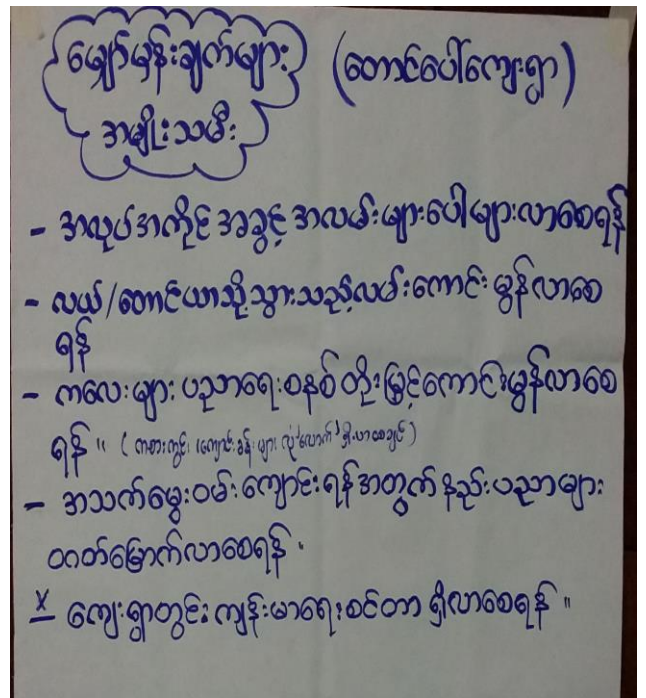 မျှော်မှန်းချက်များ (တောင်ပေါ်ကျေးရွာ)
အမျိုးသမီး
- အလုပ်အကိုင် အခွင့် အလမ်းများပေါများလာစေရန်
- လယ်/တောင်ယာသို့သွားသည့်လမ်းကောင်းမွန်လာစေ
ရန်
- ကလေးများ ပညာရေးစနစ် တိုးမြှင့်ကောင်းမွန်လာစေ
ရန်။ (ကစားကွင်း၊ ကျောင်းခန်းများ လုံလောက်ရှိလာစေချင်)
- အသက်မွေးဝမ်းကျောင်းရန်အတွက် နည်းပညာများ
တတ်မြောက်လာစေရန်။
x ကျေးရွာတွင်း ကျန်းမာရေးစင်တာ ရှိလာစေရန်။